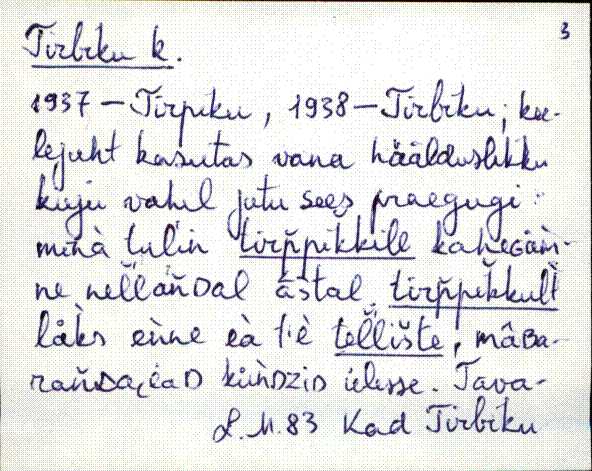 3
Tirbiku k.
1937 – Tirpiku, 1938 – Tirbiku; kü-
lejuht kasutas vana häälduslikku
kuju vahel jutu sees praegugi:
minà tulin tirp̆pikkile kaheɢàm-
ne nel̆lan̆ᴅal ástal, tirp̆pikkult
lǻks eǹne eà t'è tel̆lište, mâʙa-
küǹᴅziᴅ ülesse. Tava-
L.M. 83 Kad Tirbiku